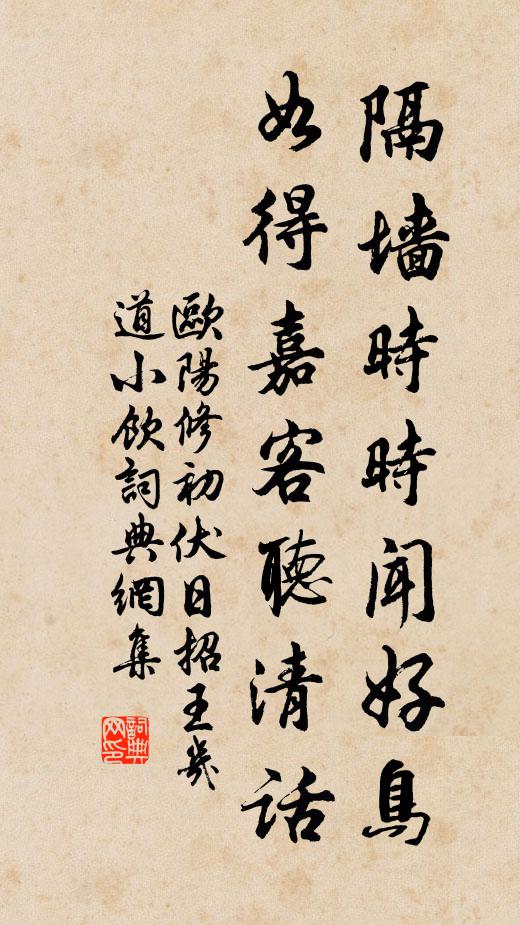 隔墻時時聞好鳥
如得嘉客聽清話
歐陽修初伏日招王幾
道小飲詞典網集
詞典
网印